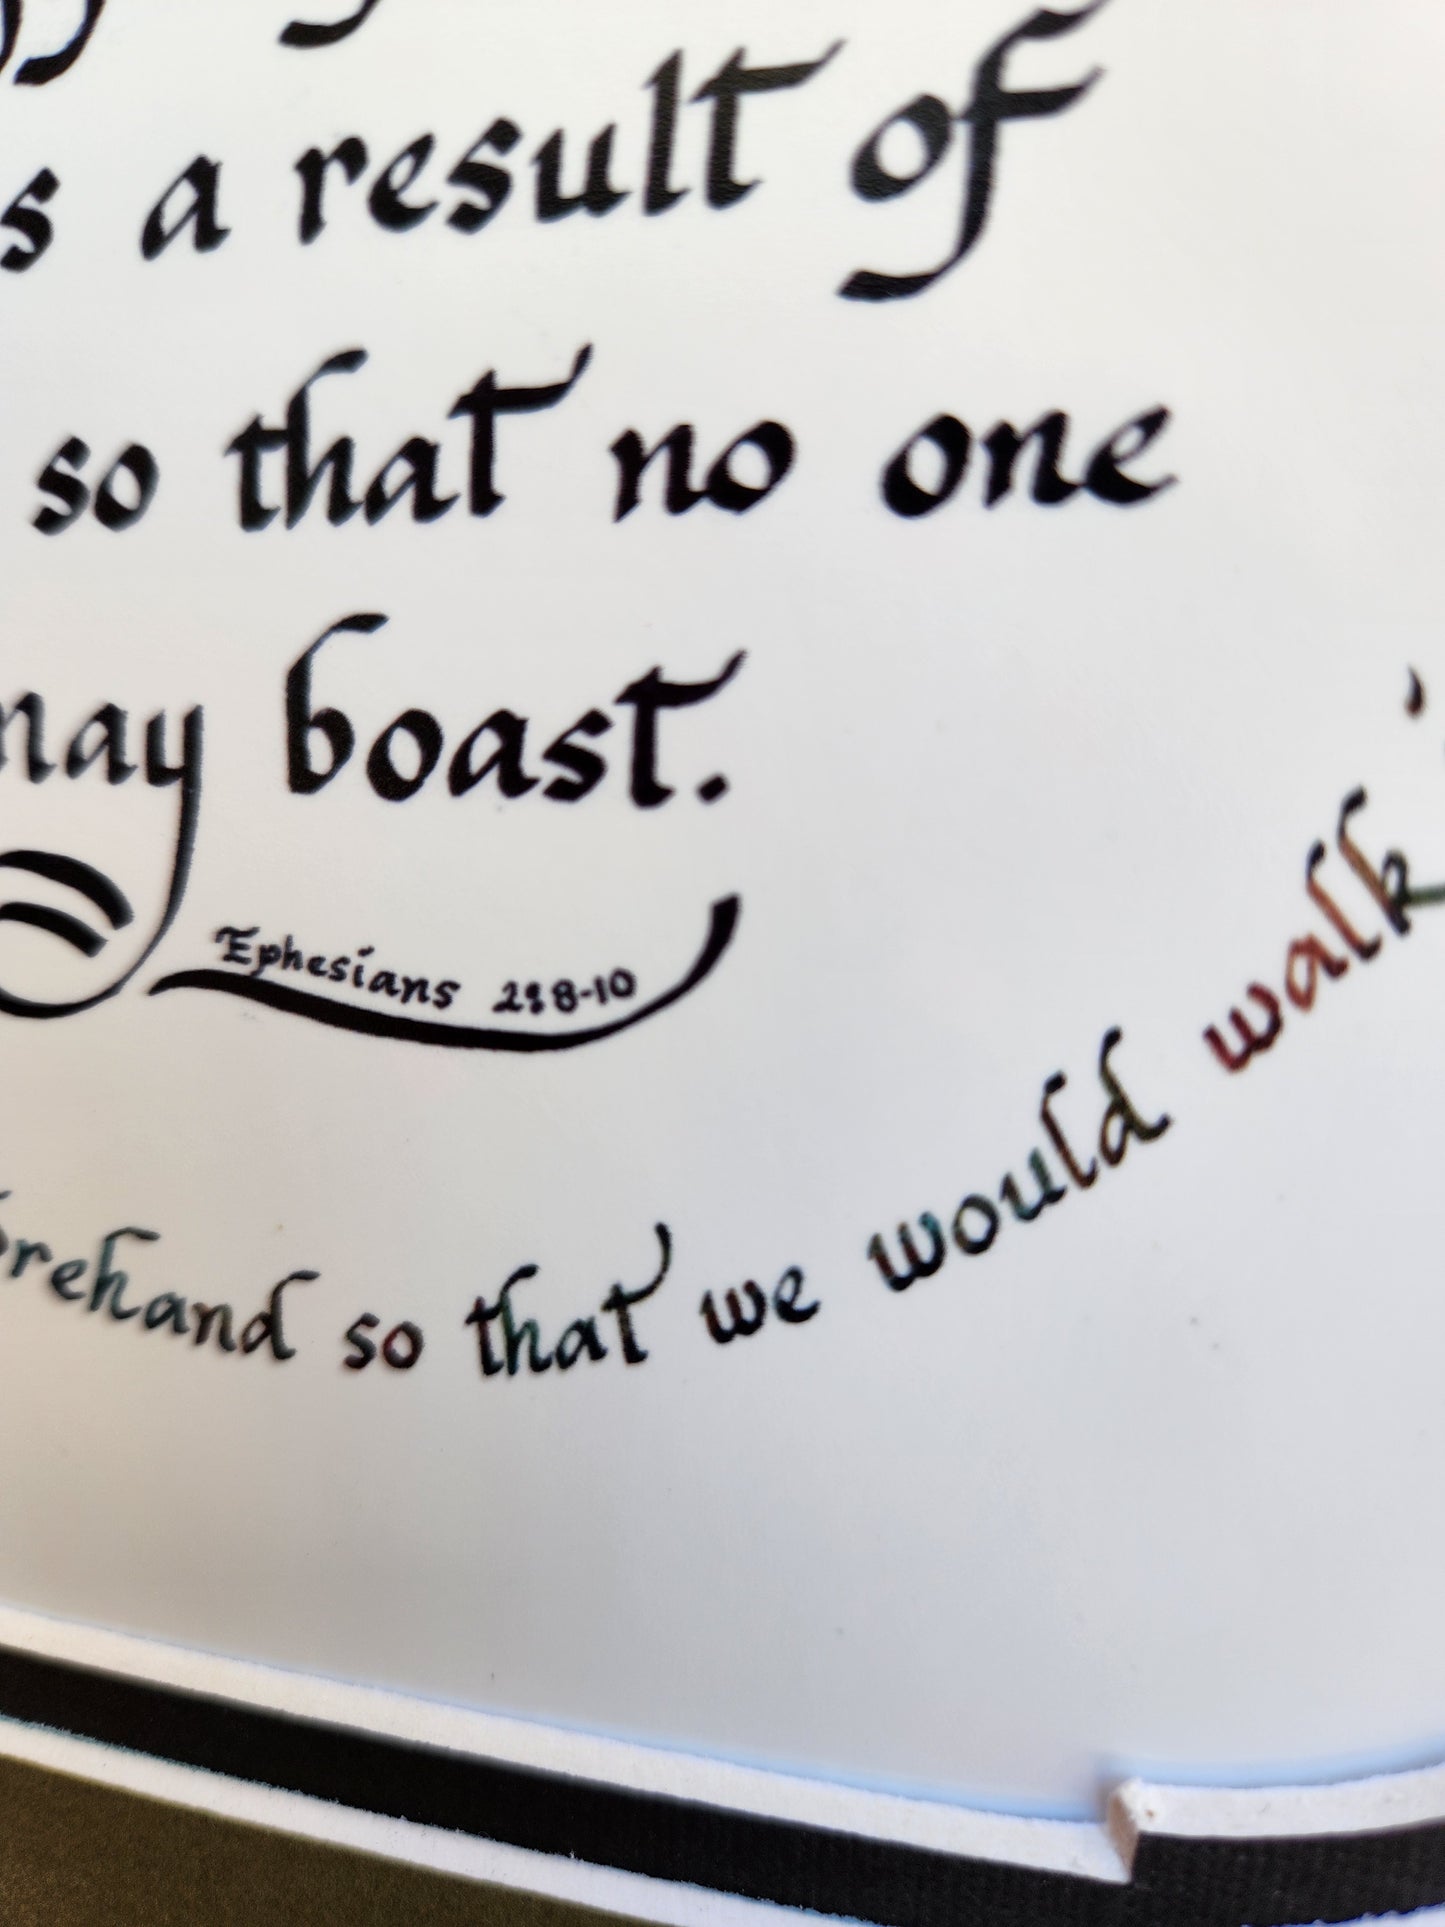 s a result of
so that no one
may boast.
Ephesians 2:8-10
orehand so that we would walk